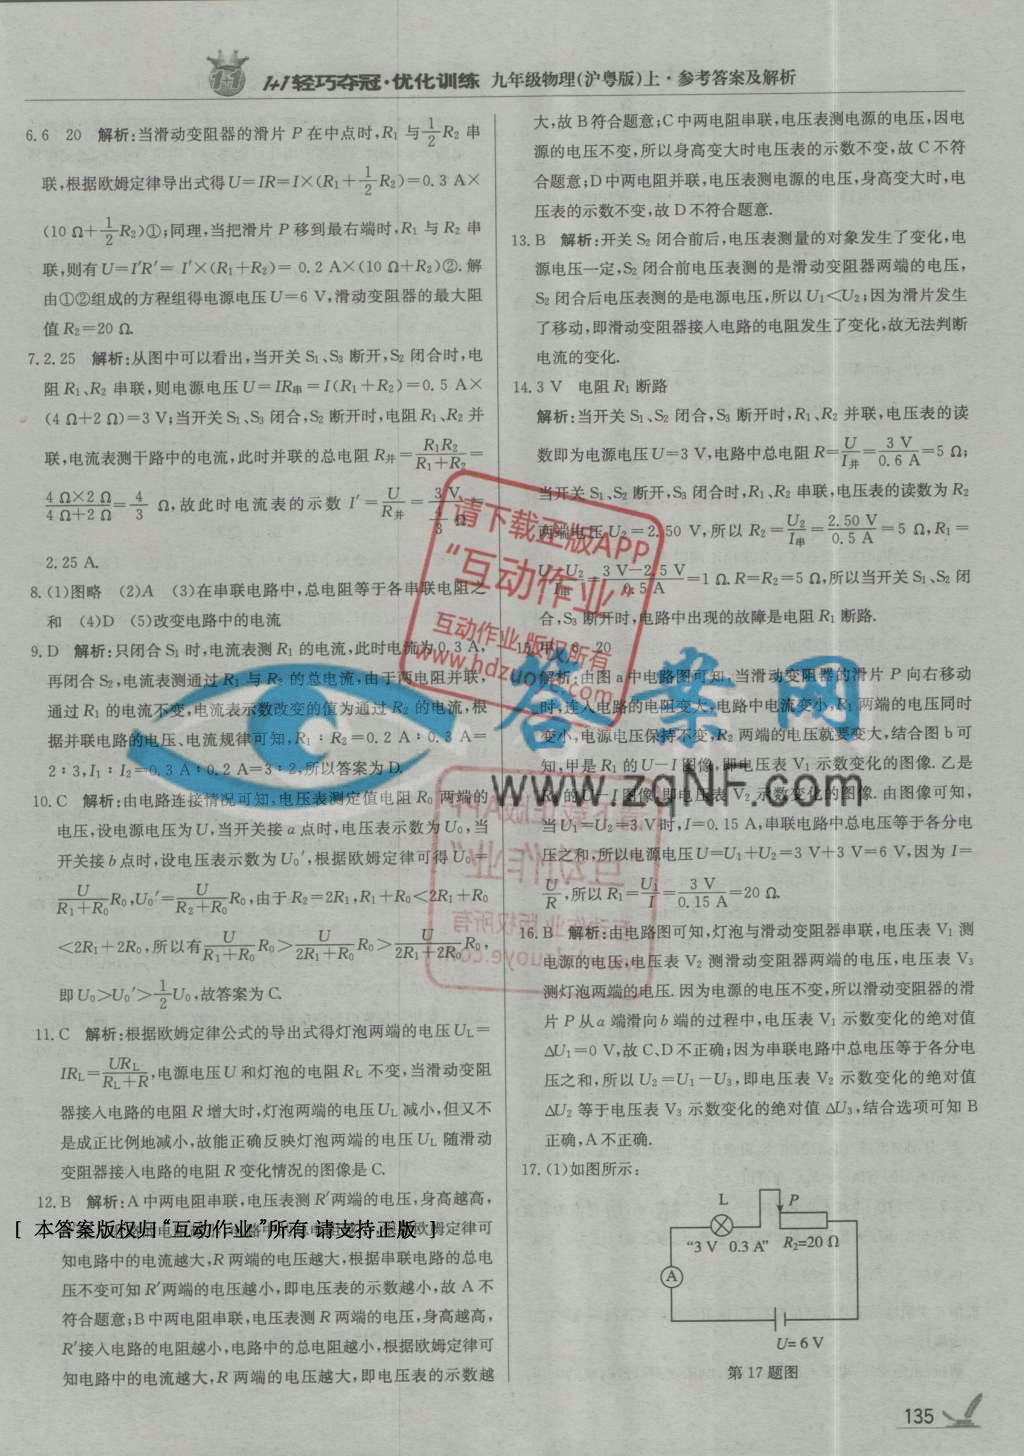 1+1轻巧夺冠·优化训练 九年级物理(沪粤版)上·参考答案及解析
6.6 20 解析:当滑动变阻器的滑片P在中点时,R₁与1/2R₂串
联,根据欧姆定律导出式得U=IR=I×(R₁+1/2R₂)=0.3 A×
(10 Ω+1/2R₂)①;同理,当把滑片P移到最右端时,R₁与R₂串
联,则有U=I′R′= I′×(R₁+R₂)= 0.2 A×(10 Ω+R₂)②.解
由①②组成的方程组得电源电压U=6 V,滑动变阻器的最大阻
值R₂=20 Ω.
7.2.25 解析:从图中可以看出,当开关S₁、S₃断开,S₂闭合时,电
阻R₁、R₂串联,则电源电压U=IR串=I(R₁+R₂)=0.5 A×
(4 Ω+2 Ω)=3 V;当开关S₁、S₃闭合,S₂断开时,电阻R₁、R₂并
联,电流表测干路中的电流,此时并联的总电阻R并=R₁R₂/(R₁+R₂)=
4 Ω×2 Ω/(4 Ω+2 Ω)=4/3 Ω,故此时电流表的示数 I′=U/R并=3 V/(4/3 Ω)=
2.25 A.
8.(1)图略 (2)A (3)在串联电路中,总电阻等于各串联电阻之
和 (4)D (5)改变电路中的电流
9.D 解析:只闭合S₁时,电流表测R₁的电流,此时电流为0.3 A,
再闭合S₂,电流表测通过R₁与R₂的总电流,由于两电阻并联,
通过R₁的电流不变,电流表示数改变的值为通过R₂的电流,根
据并联电路的电压、电流规律可知,R₁:R₂=0.2 A:0.3 A=
2:3,I₁:I₂=0.3 A:0.2 A=3:2,所以答案为D.
10.C 解析:由电路连接情况可知,电压表测定值电阻R₀两端的
电压,设电源电压为U,当开关接a点时,电压表示数为U₀,当
开关接b点时,设电压表示数为U₀′,根据欧姆定律可得U₀=
U/(R₁+R₀)R₀,U₀′=U/(R₂+R₀)R₀,由于R₂=2R₁,R₁+R₀<2R₁+R₀
<2R₁+2R₀,所以有U/(R₁+R₀)R₀>U/(2R₁+R₀)R₀>U/(2R₁+2R₀)R₀,
即U₀>U₀′>1/2U₀,故答案为C.
11.C 解析:根据欧姆定律公式的导出式得灯泡两端的电压U_L=
IR_L=UR_L/(R_L+R),电源电压U和灯泡的电阻R_L不变,当滑动变阻
器接入电路的电阻R增大时,灯泡两端的电压U_L减小,但又不
是成正比例地减小,故能正确反映灯泡两端的电压U_L随滑动
变阻器接入电路的电阻R变化情况的图像是C.
12.B 解析:A中两电阻串联,电压表测R′两端的电压,身高越高,
[ 本答案版权归“互动作业”所有 请支持正版 ]
知电路中的电流越大,R两端的电压越大,根据串联电路的总电
压不变可知R′两端的电压越小,即电压表的示数越小,故A不
符合题意;B中两电阻串联,电压表测R两端的电压,身高越高,
R′接入电路的电阻越小,电路中的总电阻越小,根据欧姆定律可
知电路中的电流越大,R两端的电压越大,即电压表的示数越
大,故B符合题意;C中两电阻串联,电压表测电源的电压,因电
源的电压不变,所以身高变大时电压表的示数不变,故C不符
合题意;D中两电阻并联,电压表测电源的电压,身高变大时,电
压表的示数不变,故D不符合题意.
13.B 解析:开关S₂闭合前后,电压表测量的对象发生了变化,电
源电压一定,S₂闭合前电压表测的是滑动变阻器两端的电压,
S₂闭合后电压表测的是电源电压,所以U₁<U₂;因为滑片发生
了移动,即滑动变阻器接入电路的电阻发生了变化,故无法判断
电流的变化.
14.3 V 电阻R₁断路
解析:当开关S₁、S₂闭合,S₃断开时,R₁、R₂并联,电压表的读
数即为电源电压U=3 V,电路中总电阻R=U/I并=3 V/0.6 A=5 Ω;
当开关S₁、S₂断开,S₃闭合时,R₁、R₂串联,电压表的读数为R₂
两端电压U₂=2.50 V,所以R₂=U₂/I串=2.50 V/0.5 A=5 Ω,R₁=
U-U₂/I串=3 V-2.5 V/0.5 A=1 Ω.R=R₂=5 Ω,所以当开关S₁、S₂闭
合,S₃断开时,电路中出现的故障是电阻R₁断路.
15.甲 6 20
解析:由图a中电路图可知,当滑动变阻器的滑片P向右移动
时,连入电路的电阻变大,电路中电流变小,R₁两端的电压同时
变小,电源电压保持不变,R₂两端的电压就要变大,结合图b可
知,甲是R₁的U-I图像,即电压表V₁示数变化的图像.乙是
R₂的U-I图像,即电压表V₂示数变化的图像.由图像可知,
当U₁=U₂=3 V时,I=0.15 A,串联电路中总电压等于各分电
压之和,所以电源电压U=U₁+U₂=3 V+3 V=6 V,因为I=
U/R,所以R₁=U₁/I=3 V/0.15 A=20 Ω.
16.B 解析:由电路图可知,灯泡与滑动变阻器串联,电压表V₁测
电源的电压,电压表V₂测滑动变阻器两端的电压,电压表V₃
测灯泡两端的电压.因为电源的电压不变,所以滑动变阻器的滑
片P从a端滑向b端的过程中,电压表V₁示数变化的绝对值
ΔU₁=0 V,故C、D不正确;因为串联电路中总电压等于各分电
压之和,所以U₂=U₁-U₃,即电压表V₂示数变化的绝对值
ΔU₂等于电压表V₃示数变化的绝对值ΔU₃,结合选项可知B
正确,A不正确.
17.(1)如图所示:
L P
“3 V 0.3 A” R₂=20 Ω
A
U= 6 V
第17题图
135
请下载正版APP
“互动作业”
互动作业 版权所有
www.hdzuoye.com
答案网
www.zqNF.com